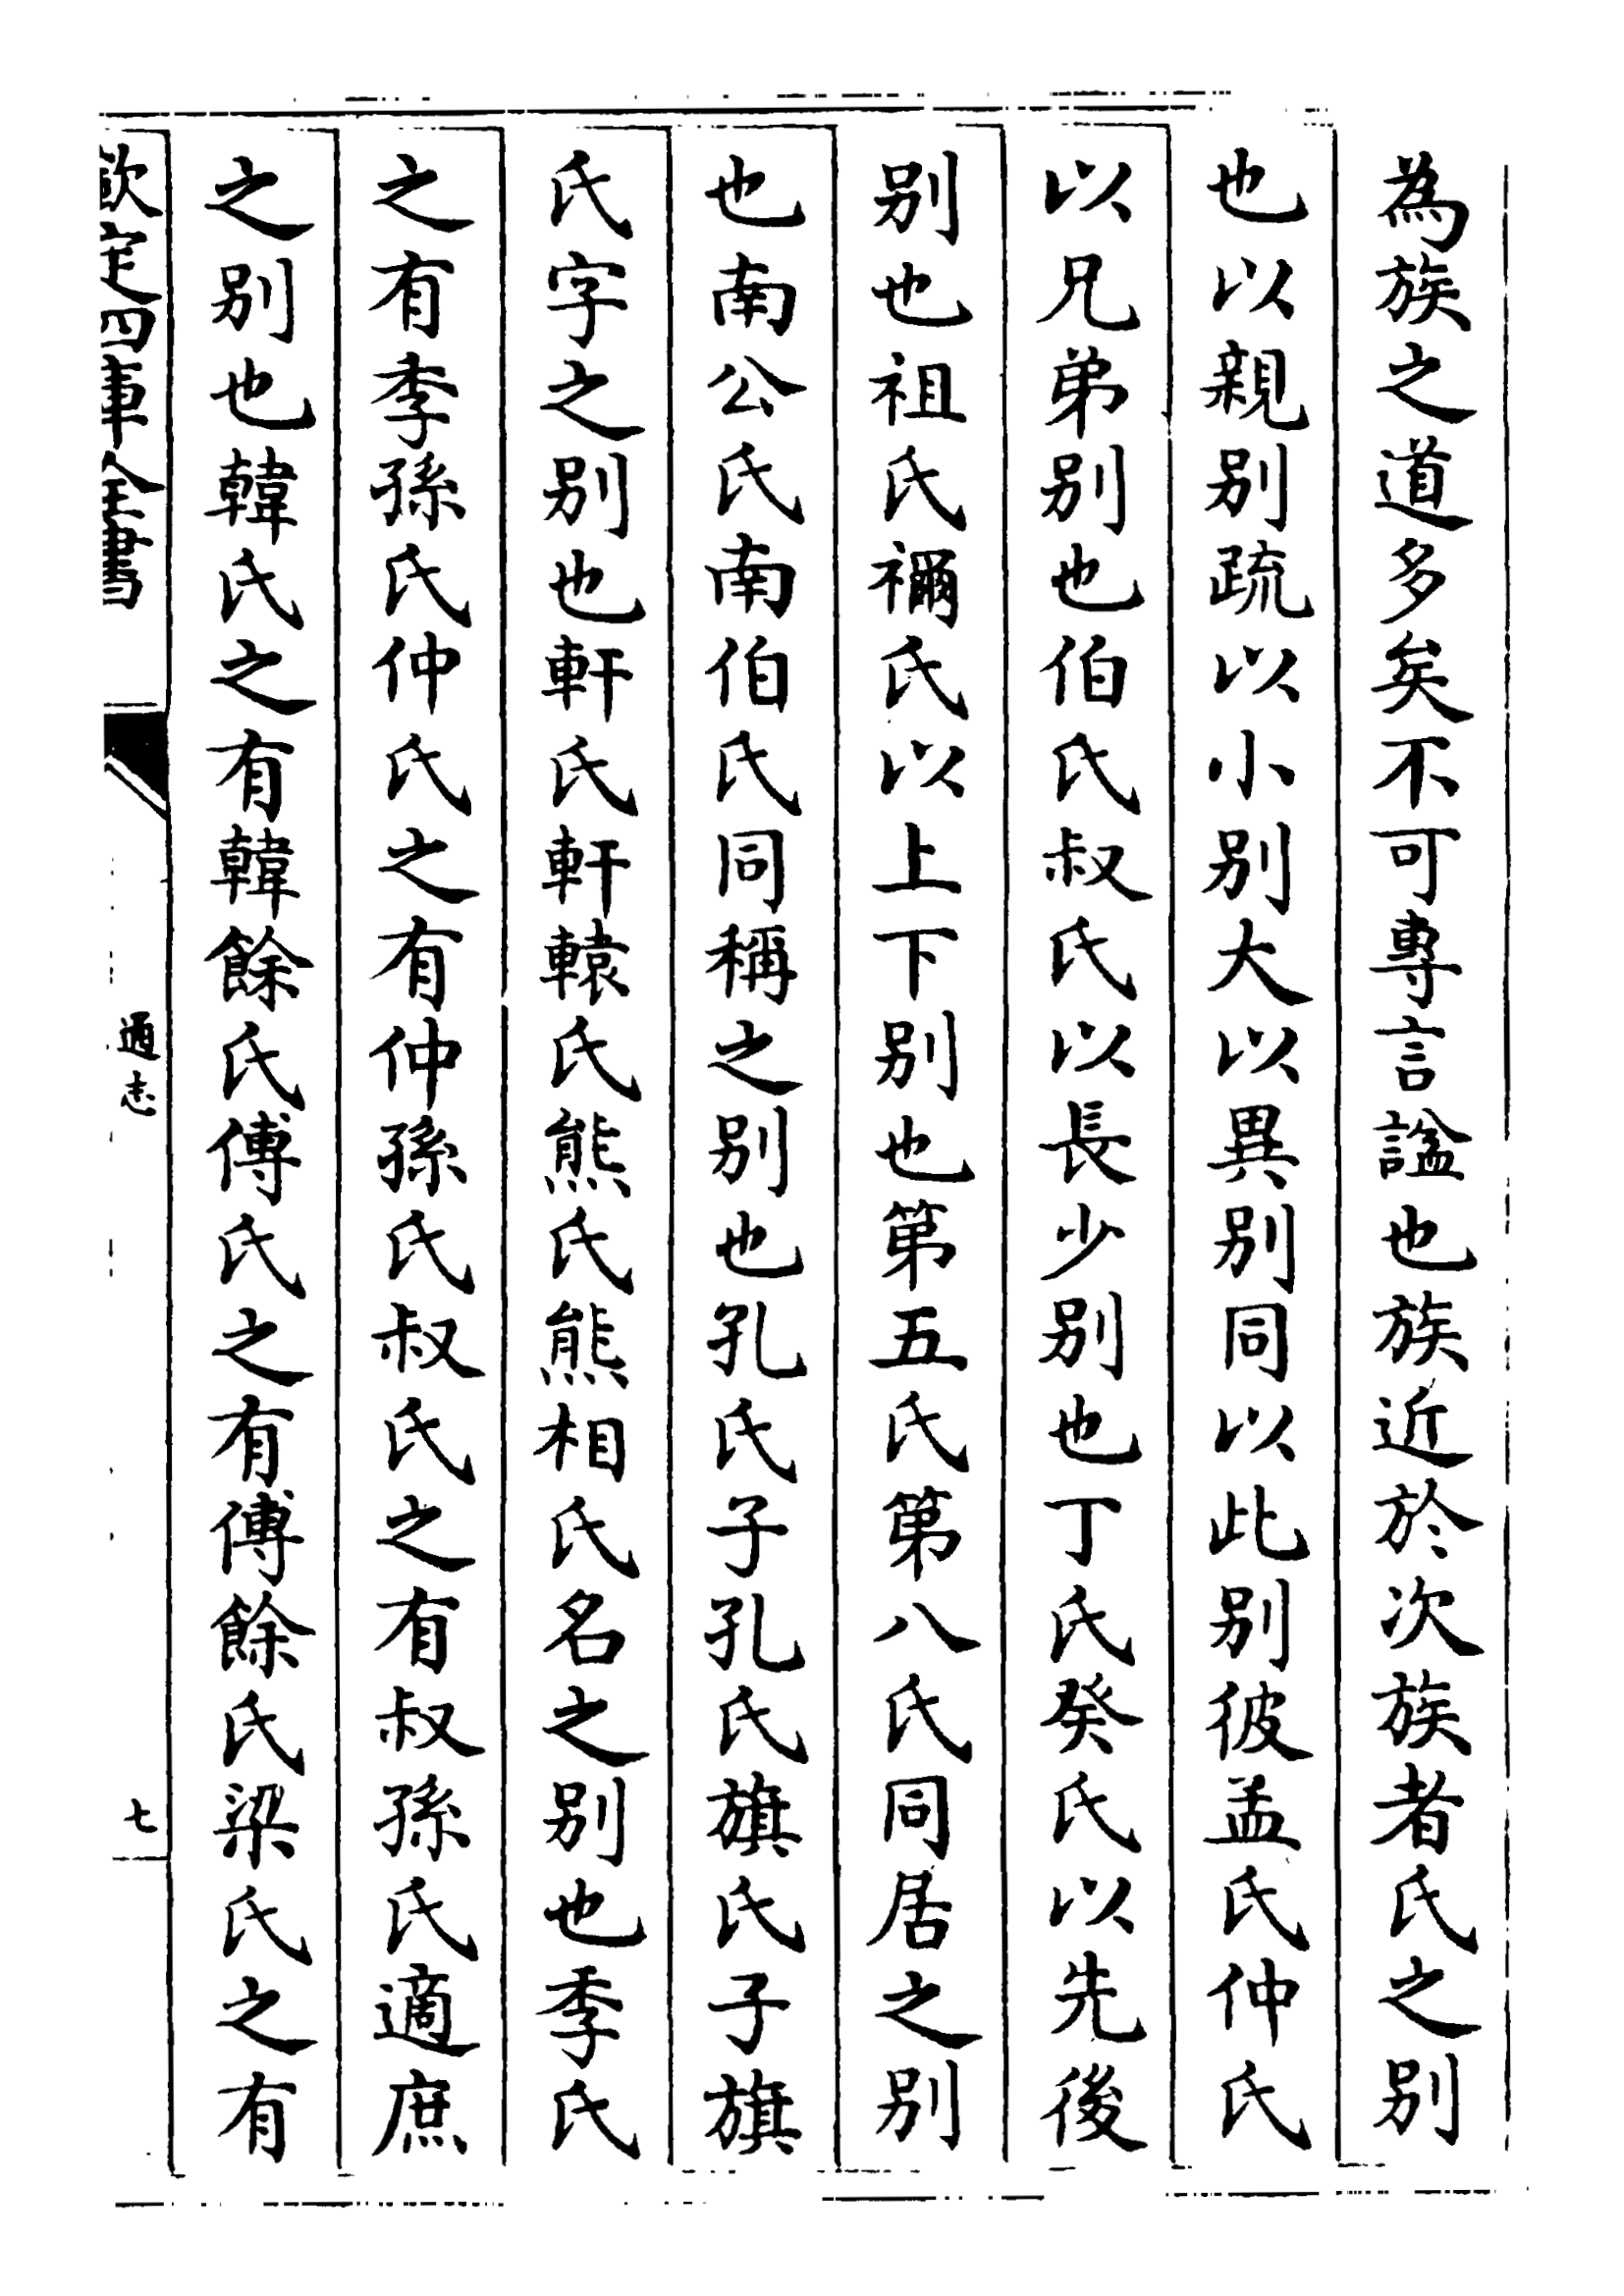 為族之道多矣不可專言諡也族近於次族者氏之别
也以親别疏以小别大以異别同以此别彼孟氏仲氏
以兄弟别也伯氏叔氏以長少别也丁氏癸氏以先後
别也祖氏禰氏以上下别也第五氏第八氏同居之别
也南公氏南伯氏同稱之别也孔氏子孔氏旗氏子旗
氏字之别也軒氏軒轅氏熊氏熊相氏名之别也季氏
之有季孫氏仲氏之有仲孫氏叔氏之有叔孫氏適庶
之别也韓氏之有韓餘氏傅氏之有傅餘氏梁氏之有
欽定四庫全書
通志
七